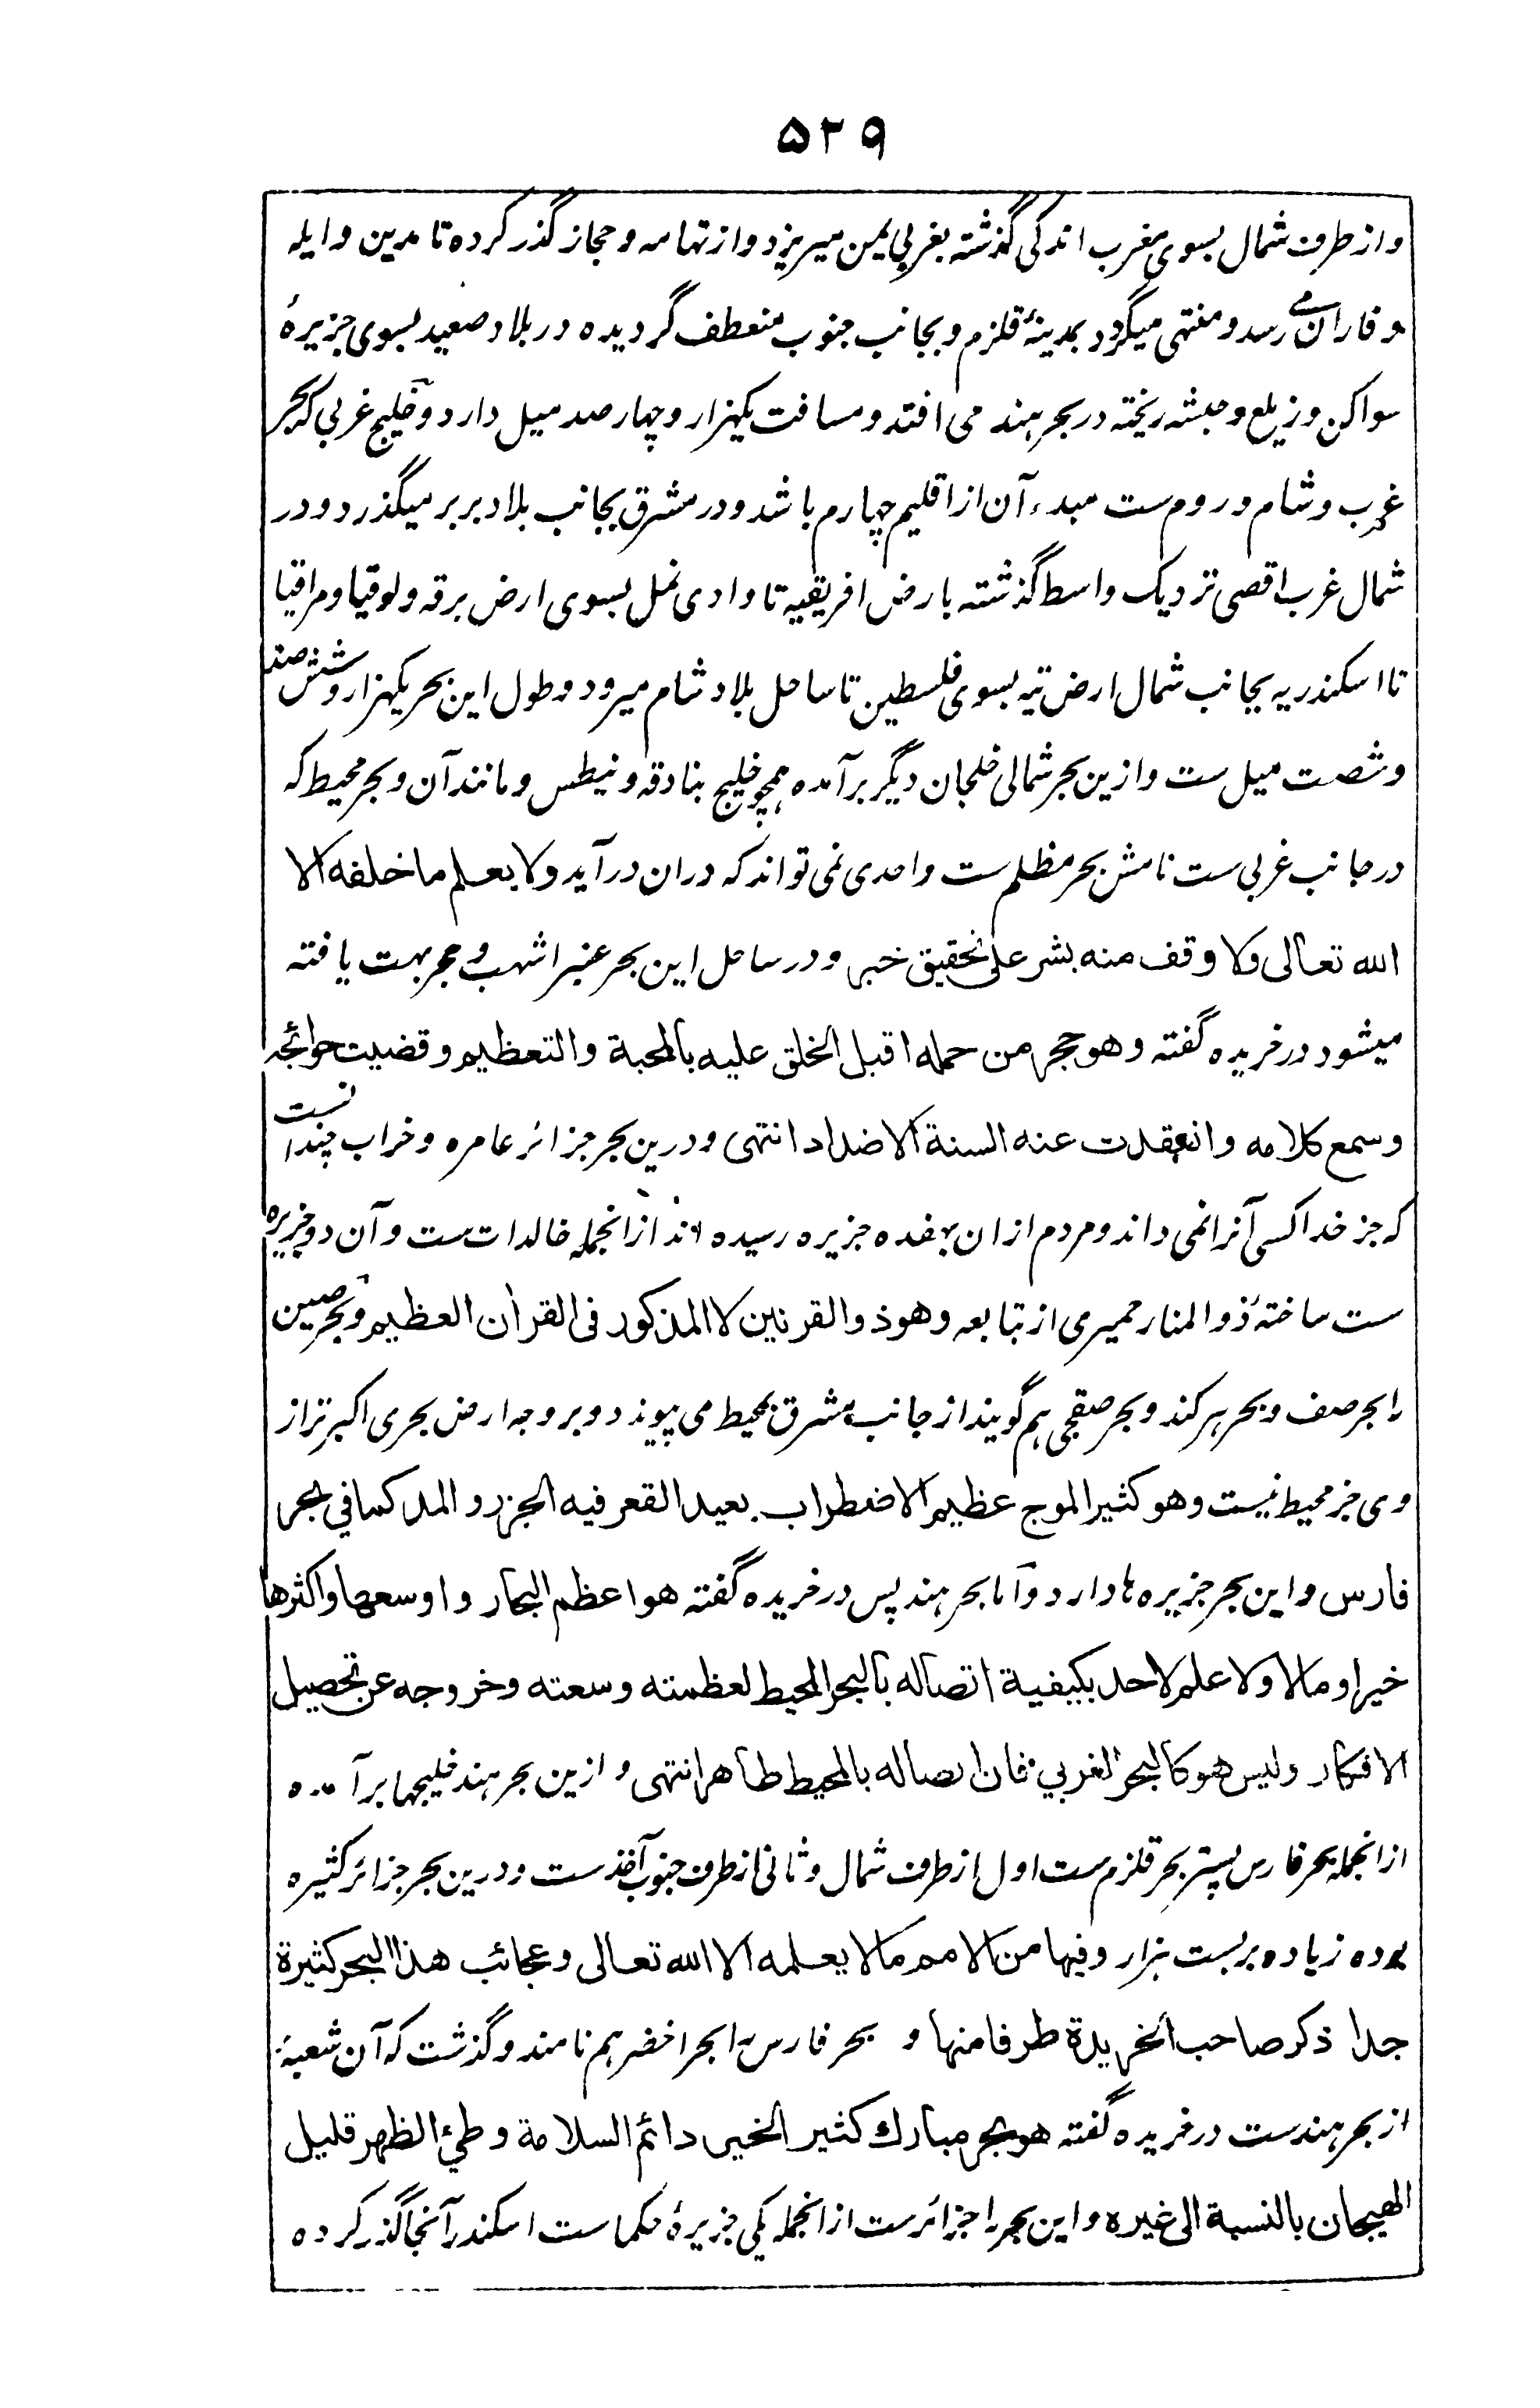 ۵۲۹
و از طرف شمال بسوی مغرب اندکی گذشته بغربی یمن میریزد و از تهامه و حجاز گذر کرده تا مدین و ایله
و فاران می رسد و منتهی میگردد بمدینهٔ قلزم و بجانب جنوب منعطف گردیده در بلاد صعید بسوی جزیرهٔ
سواکن و زیلع و حبشه ریخته در بحر هند می افتد و مسافت یکهزار و چهار صد میل دارد و خلیج غربی که بحر
غرب و شام و روم ست مبدء آن از اقلیم چهارم باشد و در مشرق بجانب بلاد بربر میگذرد و در
شمال غرب اقصی نزدیک واسط گذشته بارض افریقیه تا وادی نمل بسوی ارض برقه و لوقیا و مراقیا
تا اسکندریه بجانب شمال ارض تیه بسوی فلسطین تا ساحل بلاد شام میرود و طول این بحر یکهزار و شش صد
و شصت میل ست و ازین بحر شمالی خلجان دیگر برآمده همچو خلیج بنادقه و نیطس و مانند آن و بحر محیط که
در جانب غربی ست نامش بحر مظلم ست و احدی نمی تواند که دران درآید ولا یعلم ما خلفه الا
الله تعالی ولا وقف منه بشر علی تحقیق خبر و در ساحل این بحر عنبر اشهب و حجر بهت یافته
میشود در خریده گفته وهو حجر من حمله اقبل الخلق علیه بالمحبة والتعظیم وقضیت حوائجه
وسمع کلامه وانعقدت عنه السنة الاضداد انتهی و درین بحر جزائر عامره و خراب چندانست
که جز خدا کسی آنرا نمی داند و مردم ازان بهفده جزیره رسیده اند ازانجمله خالدات ست و آن دو جزیره
ست ساختهٔ ذو المنار حمیری از تبابعه وهو ذو القرنین لا المذکور فی القرآن العظیم و بحر صین
را بحر صنف و بحر هرکند و بحر صقجی هم گویند از جانب مشرق بمحیط می پیوندد و بر وجه ارض بحری اکبر تر از
وی جز محیط نیست وهو کثیر الموج عظیم الاضطراب بعید القعر فیه الجزر والمد کما فی بحر
فارس و این بحر جزیره ها دارد و اما بحر هند پس در خریده گفته هو اعظم البحار واوسعها واکثرها
خیرا ومالا ولا علم لاحد بکیفیة اتصاله بالبحر المحیط لعظمته وسعته وخروجه عن تحصیل
الافکار ولیس هو کالبحر الغربی فان اتصاله بالمحیط ظاهر انتهی و ازین بحر هند خلیجها برآمده
ازانجمله بحر فارس پستر بحر قلزم ست اول از طرف شمال و ثانی از طرف جنوب آخذ ست و درین بحر جزائر کثیره
بوده زیاده بر بست هزار وفیها من الامم ما لا یعلمه الا الله تعالی وعجائب هذا البحر کثیرة
جدا ذکر صاحب الخریدة طرفا منها و بحر فارس را بحر اخضر هم نامند و گذشت که آن شعبهٔ
از بحر هندست در خریده گفته هو بحر مبارک کثیر الخیر دائم السلامة وطئ الظهر قلیل
الهیجان بالنسبة الی غیره و این بحر را جزائرست ازانجمله یکی جزیرهٔ حکماست اسکندر آنجا گذر کرده